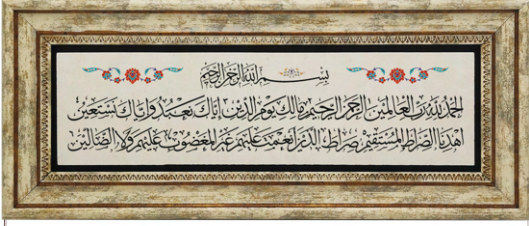 بسم الله الرحمن الرحيم
الحمد لله رب العالمين الرحمن الرحيم مالك يوم الدين إياك نعبد وإياك نستعين
اهدنا الصراط المستقيم صراط الذين أنعمت عليهم غير المغضوب عليهم ولا الضالين